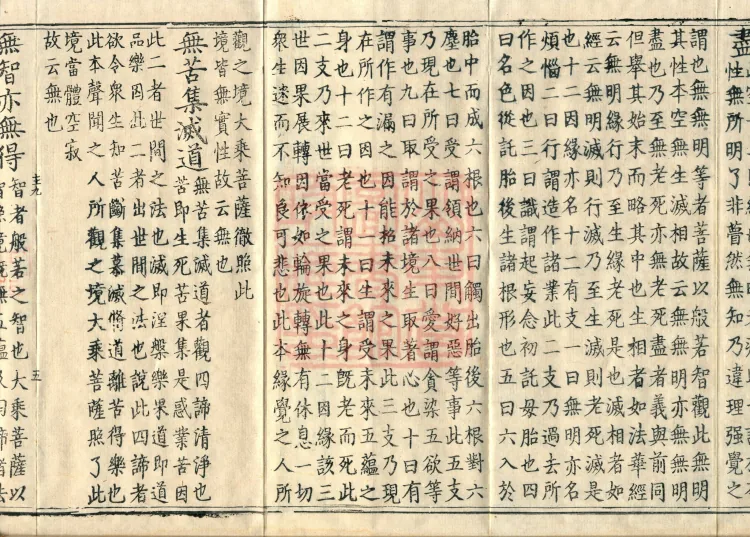 盡
性無所明了非瞢然無知乃違理强覺之
謂也無無明等者菩薩以般若智觀此無明
其性本空無生滅相故云無無明亦無無明
盡也乃至無老死亦無老死盡者義與前同
但舉其始末而略其中也生相者如法華經
云無明緣行乃至生緣老死是也滅相者如
經云無明滅則行滅乃至生滅則老死滅是
也十二因緣亦名十二有支一曰無明亦名
煩惱二曰行謂造作諸業此二支乃過去所
作之因也三曰識謂起妄念初託母胎也四
曰名色從託胎後生諸根形也五曰六入於
胎中而成六根也六曰觸出胎後六根對六
塵也七曰受謂領納世間好惡等事此五支
乃現在所受之果也八曰愛謂貪染五欲等
事也九曰取謂於諸境生取著心也十曰有
謂作有漏之因能招未來之果此三支乃現
在所作之因也十一曰生謂受未來五蘊之
身也十二曰老死謂未來之身既老而死此
二支乃來世當受之果也此十二因緣該三
世因果展轉因依如輪旋轉無有休息一切
衆生迷而不知良可悲也此本緣覺之人所
觀之境大乘菩薩徹照此
境皆無實性故云無也
無苦集滅道
無苦集滅道者觀四諦清淨也
苦即生死苦果集是惑業苦因
此二者世間之法也滅即涅槃樂果道即道
品樂因此二者出世間之法也說此四諦者
欲令衆生知苦斷集慕滅修道離苦得樂也
此本聲聞之人所觀之境大乘菩薩照了此
境當體空寂
故云無也
五
無智亦無得
智者般若之智也大乘菩薩以